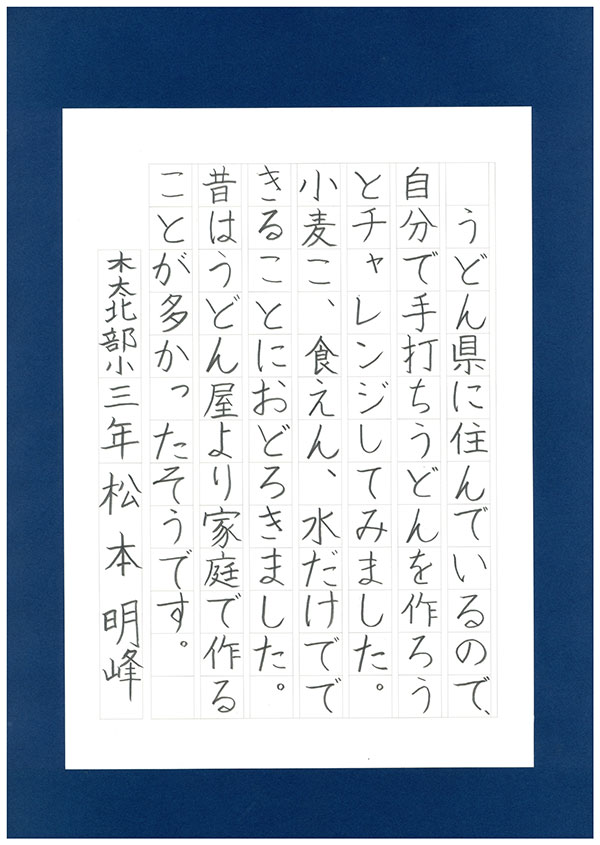 うどん県に住んでいるので、
自分で手打ちうどんを作ろう
とチャレンジしてみました。
小麦こ、食えん、水だけでで
きることにおどろきました。
昔はうどん屋より家庭で作る
ことが多かったそうです。
木太北部小三年松本明峰